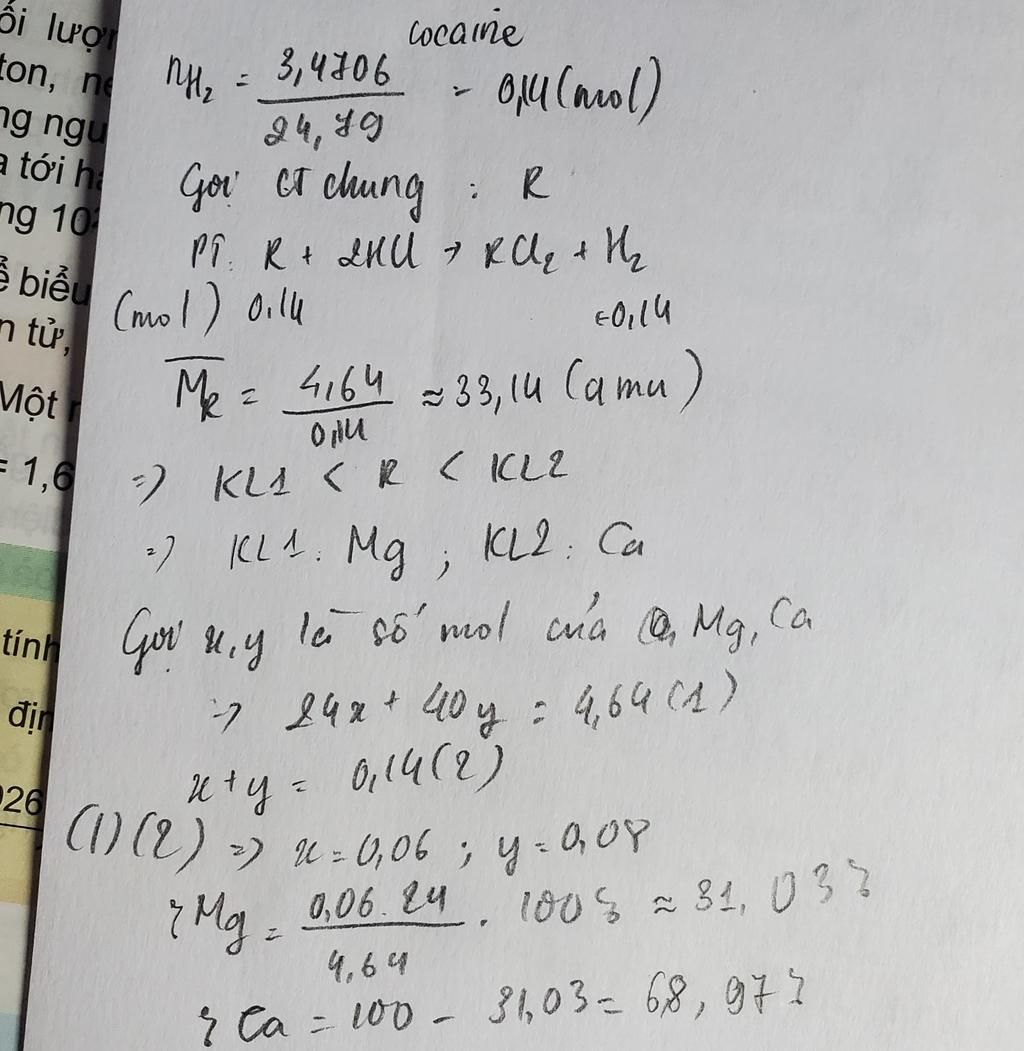 ối lượn
ton, ne
ng ngu
a tới h
ng 10
ể biểu
n tử,
Một
= 1,6
tính
địn
026
cocaine
nH₂ = 3,4706 / 24,79 = 0,14 (mol)
Gọi CT chung : R
PT: R + 2HCl → RCl₂ + H₂
(mol) 0,14 ←0,14
M̅R = 4,64 / 0,14 ≈ 33,14 (amu)
=> KL1 < R < KL2
=> KL1: Mg ; KL2: Ca
Gọi x,y là số mol của Mg, Ca
=> 24x + 40y = 4,64 (1)
x + y = 0,14 (2)
(1)(2) => x = 0,06 ; y = 0,08
%Mg = 0,06.24 / 4,64 . 100% ≈ 31,03%
%Ca = 100 - 31,03 = 68,97%